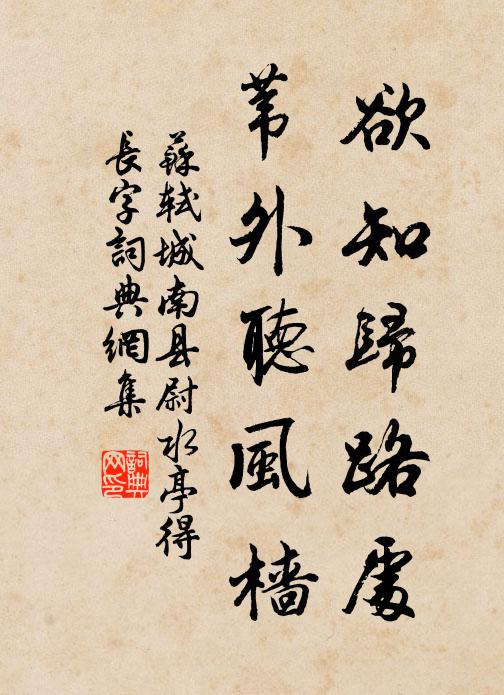 欲知歸路處
葦外聽風檣
蘇轼城南县尉水亭得
長字詞典網集
詞典
网印